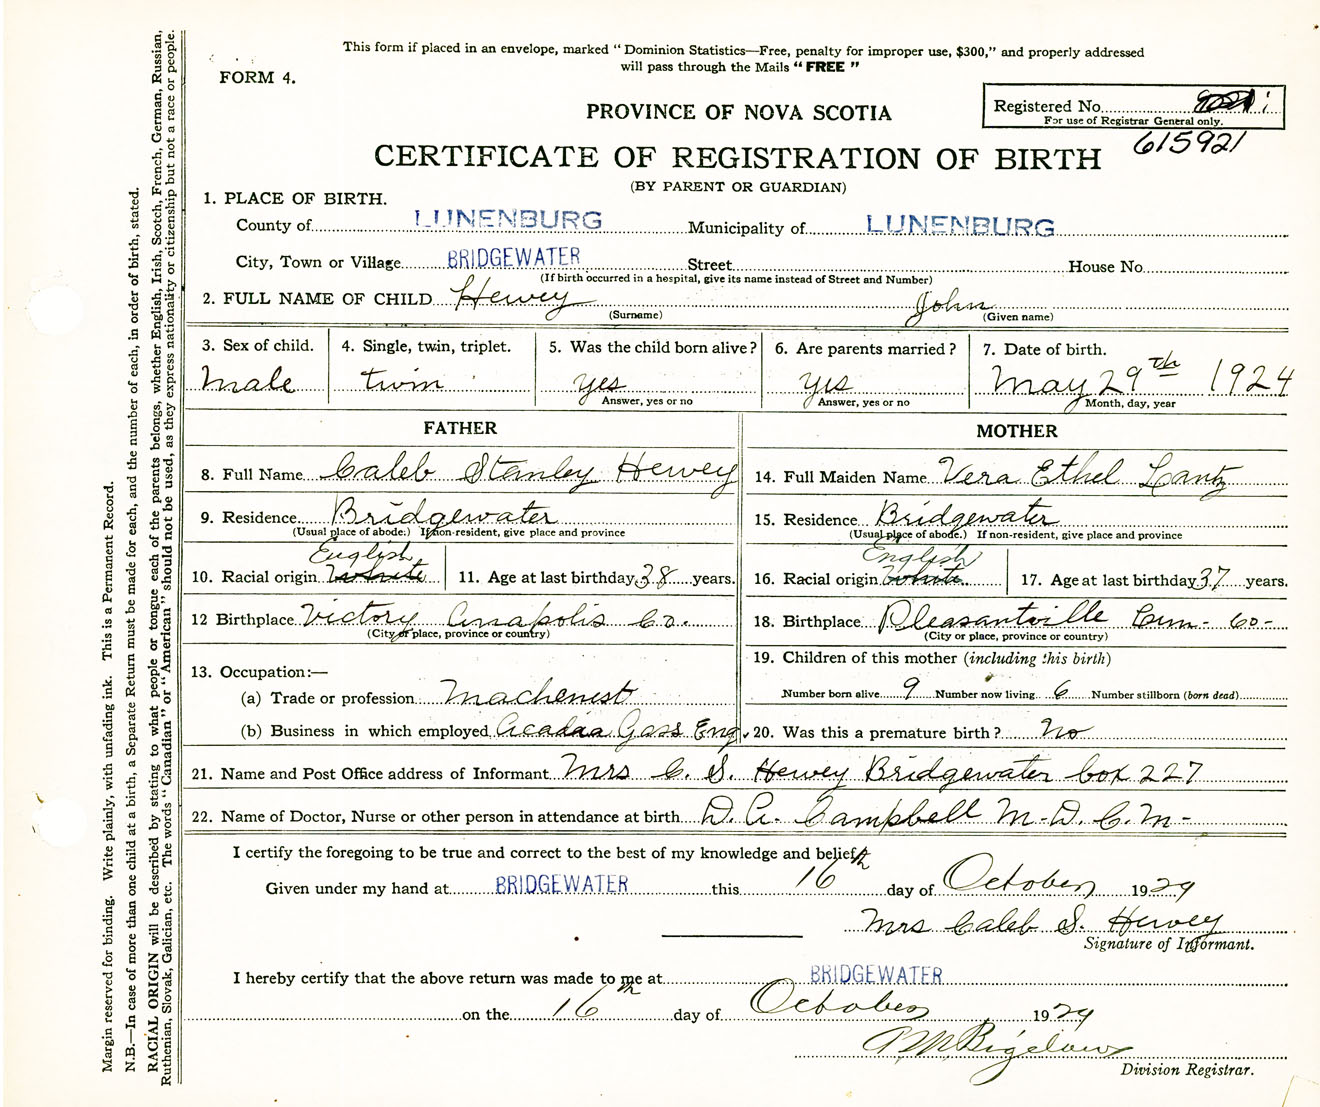 This form if placed in an envelope, marked "Dominion Statistics—Free, penalty for improper use, $300," and properly addressed
will pass through the Mails "FREE"
FORM 4.
Registered No.
For use of Registrar General only.
615921
PROVINCE OF NOVA SCOTIA
CERTIFICATE OF REGISTRATION OF BIRTH
(BY PARENT OR GUARDIAN)
1. PLACE OF BIRTH.
County of LUNENBURG Municipality of LUNENBURG
City, Town or Village BRIDGEWATER Street House No.
(If birth occurred in a hospital, give its name instead of Street and Number)
2. FULL NAME OF CHILD Hewey John
(Surname) (Given name)
3. Sex of child. 4. Single, twin, triplet. 5. Was the child born alive? 6. Are parents married? 7. Date of birth.
Male twin yes yes May 29th 1924
Answer, yes or no Answer, yes or no Month, day, year
FATHER MOTHER
8. Full Name Caleb Stanley Hewey 14. Full Maiden Name Vera Ethel Lantz
9. Residence Bridgewater 15. Residence Bridgewater
(Usual place of abode.) If non-resident, give place and province (Usual place of abode.) If non-resident, give place and province
English English
10. Racial origin White 11. Age at last birthday 38 years. 16. Racial origin White 17. Age at last birthday 37 years.
12 Birthplace Victory Anapolis Co. 18. Birthplace Pleasantville Lun- Co-
(City or place, province or country) (City or place, province or country)
13. Occupation:— 19. Children of this mother (including this birth)
(a) Trade or profession Machenist Number born alive 9 Number now living 6 Number stillborn (born dead)
(b) Business in which employed Acadia Gass Eng. 20. Was this a premature birth? No
21. Name and Post Office address of Informant Mrs C. S. Hewey Bridgewater box 227
22. Name of Doctor, Nurse or other person in attendance at birth D. A. Campbell M-D. C. M-
I certify the foregoing to be true and correct to the best of my knowledge and belief.
Given under my hand at BRIDGEWATER this 16th day of October 1929
Mrs Caleb S. Hewey
Signature of Informant.
I hereby certify that the above return was made to me at BRIDGEWATER
on the 16th day of October 1929
Bigelow
Division Registrar.
Margin reserved for binding. Write plainly, with unfading ink. This is a Permanent Record.
N.B.—In case of more than one child at a birth, a Separate Return must be made for each, and the number of each, in order of birth, stated.
RACIAL ORIGIN will be described by stating to what people or tongue each of the parents belongs, whether English, Irish, Scotch, French, German, Russian,
Ruthenian, Slovak, Galician, etc. The words "Canadian" or "American" should not be used, as they express nationality or citizenship but not a race or people.